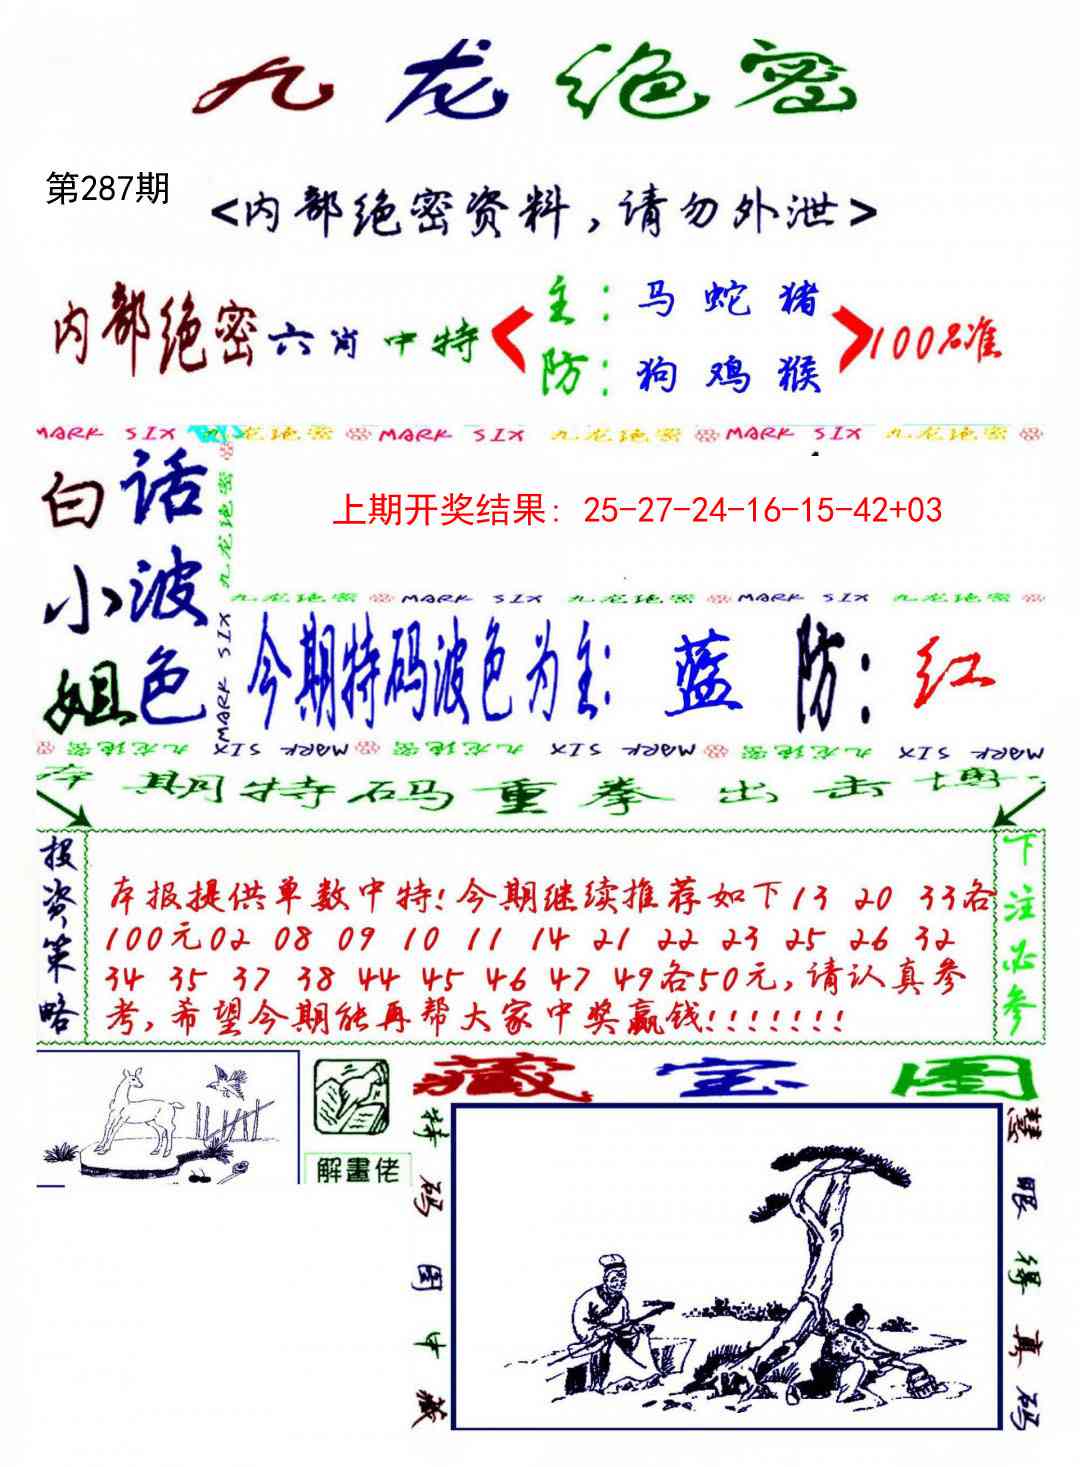 九龙绝密
第287期
<内部绝密资料，请勿外泄>
内部绝密六肖中特
主：马 蛇 猪
防：狗 鸡 猴
100%准
MARK SIX 九龙绝密 MARK SIX 九龙绝密 MARK SIX 九龙绝密
白小姐
话波色
九龙绝密
MARK SIX
上期开奖结果: 25-27-24-16-15-42+03
九龙绝密 MARK SIX 九龙绝密 MARK SIX 九龙绝密
今期特码波色为主: 蓝 防: 红
九龙绝密 MARK SIX 九龙绝密 MARK SIX 九龙绝密 MARK SIX
本期特码重拳出击博
投资策略
本报提供单数中特!今期继续推荐如下13 20 33各
100元02 08 09 10 11 14 21 22 23 25 26 32
34 35 37 38 44 45 46 47 49各50元,请认真参
考,希望今期能再帮大家中奖赢钱!!!!!!!
下注必参
解畫佬
藏宝图
特码图中藏
慧眼得真码